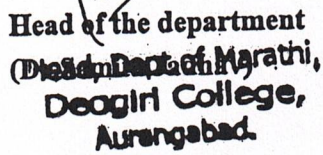 Head of the department
Head, Dept. of Marathi,
Deogiri College,
Aurangabad.